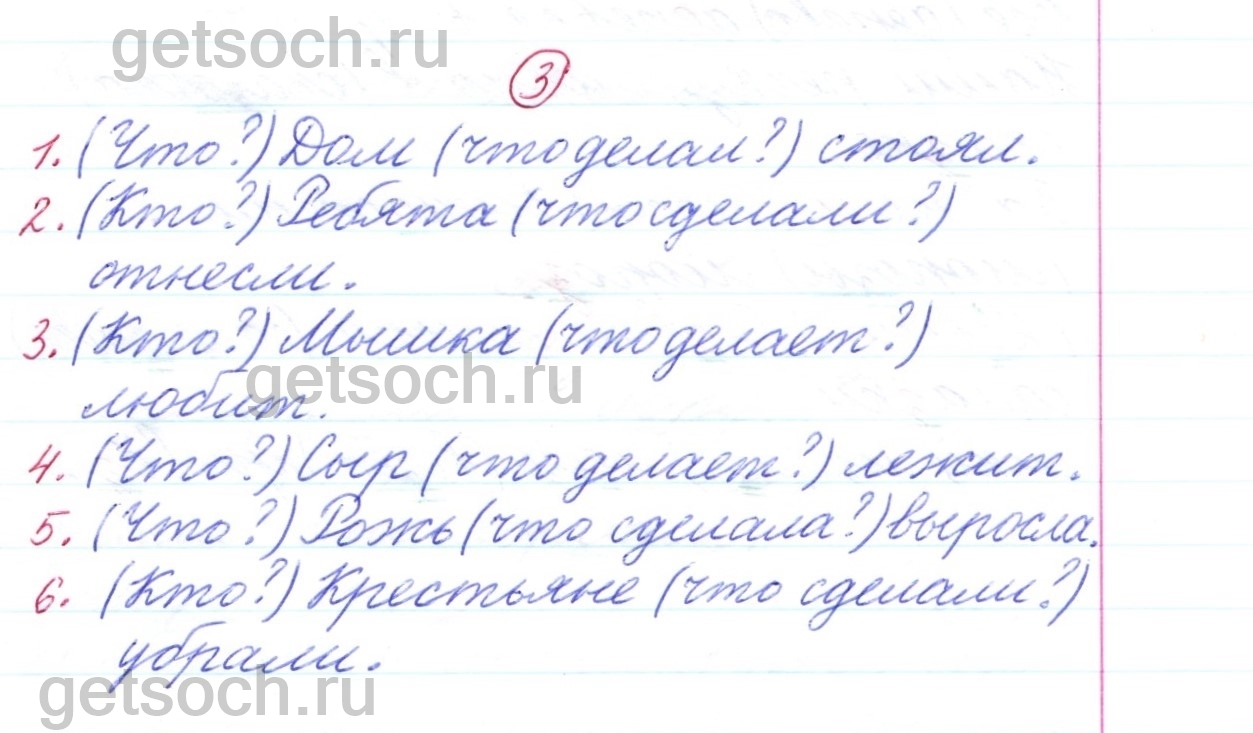 getsoch.ru
3
1. (Что?) Дом (что делал?) стоял.
2. (Кто?) Ребята (что сделали?)
отнесли.
3. (Кто?) Мышка (что делает?)
getsoch.ru
любит.
4. (Что?) Сыр (что делает?) лежит.
5. (Что?) Рожь (что сделала?) выросла.
6. (Кто?) Крестьяне (что сделали?)
убрали.
getsoch.ru